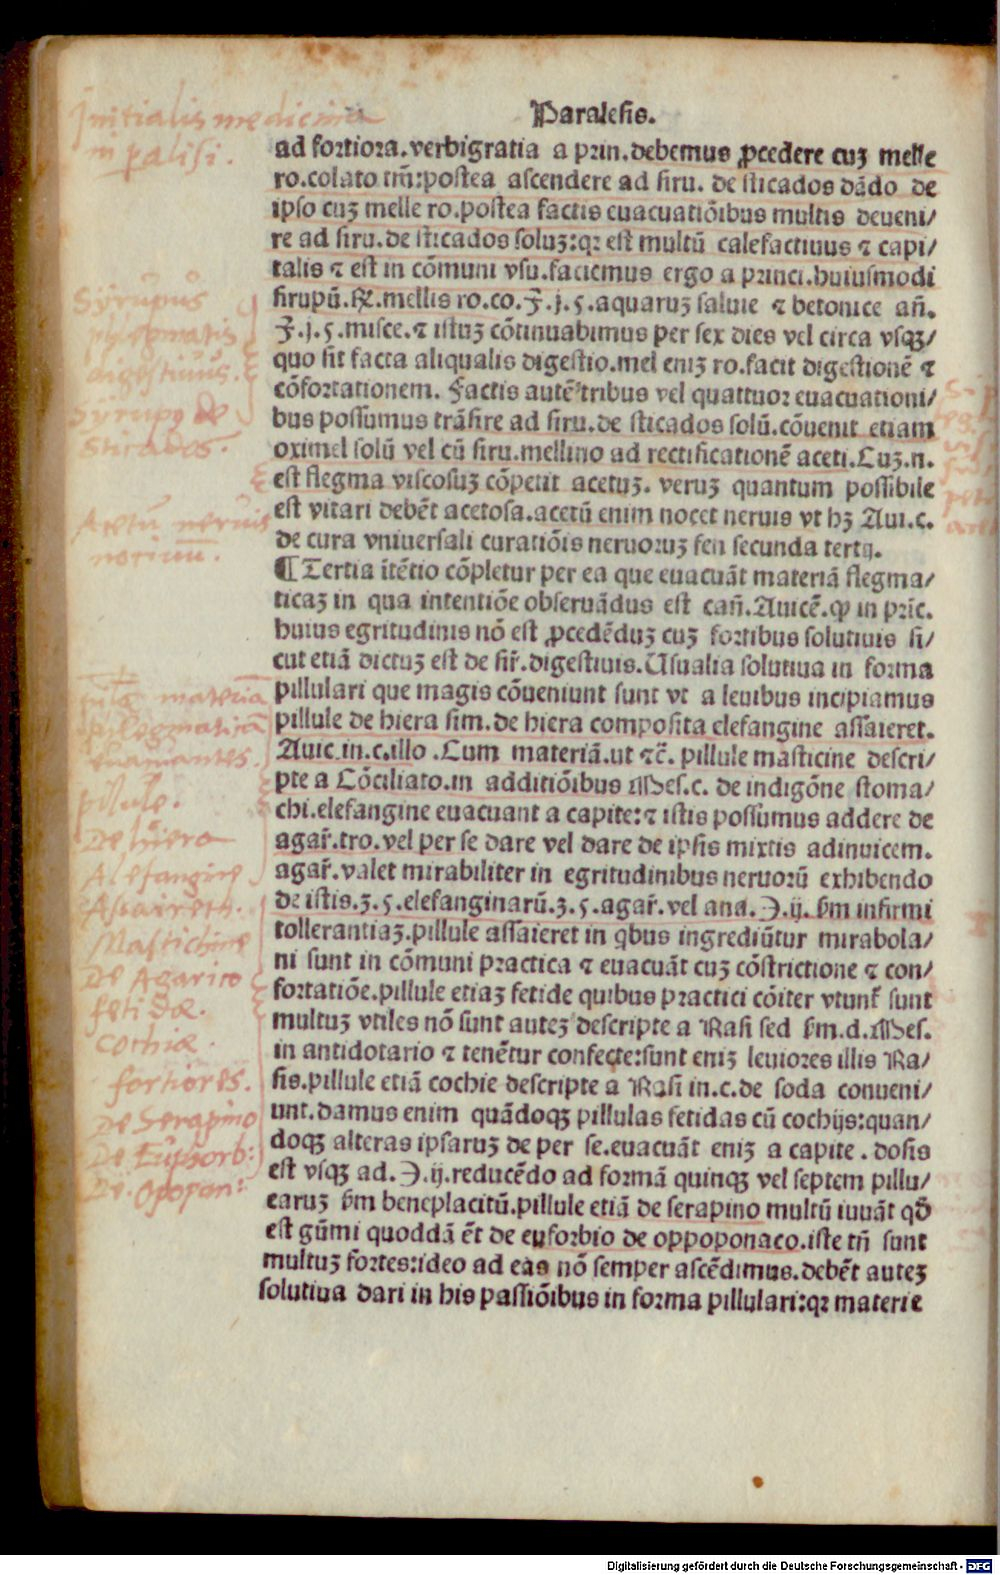 Paralesis.
ad fortiora.verbigratia a prin.debemus ꝓcedere cuꝫ melle
ro.colato tm̄:postea ascendere ad siru. de sticados dādo de
ipso cuꝫ melle ro.postea factis euacuatiōibus multis deueni/
re ad siru.de sticados soluꝫ:qꝛ est multū calefactiuus ⁊ capi/
talis ⁊ est in cōmuni vsu.faciemus ergo a princi.huiusmodi
sirupū.℞.mellis ro.co.℥.j.ꝭ.aquaruꝫ saluie ⁊ betonice an̄.
℥.j.ꝭ.misce.⁊ istuꝫ cōtinuabimus per sex dies vel circa vsqꝫ/
quo sit facta aliqualis digestio.mel eniꝫ ro.facit digestionē ⁊
cōfortationem. Factis autē tribus vel quattuor euacuationi/
bus possumus trāsire ad siru.de sticados solū.cōuenit etiam
oximel solū vel cū siru.mellino ad rectificationē aceti.Cuꝫ.n.
est flegma viscosuꝫ cōpetit acetuꝫ. veruꝫ quantum possibile
est vitari debēt acetosa.acetū enim nocet neruis vt hꝫ Aui.c.
de cura vniuersali curatiōis neruoruꝫ fen secunda tertij.
¶ Tertia ītētio cōpletur per ea que euacuāt materiā flegma/
ticaꝫ in qua intentiōe obseruādus est can̄.Auicē.ꝙ in prīc.
huius egritudinis nō est ꝓcedēduꝫ cuꝫ fortibus solutiuis si/
cut etiā dictuꝫ est de sir̄.digestiuis.Usualia solutiua in forma
pillulari que magis cōueniunt sunt vt a leuibus incipiamus
pillule de hiera sim.de hiera composita elefangine assaieret.
Auic.in.c.illo .Cum materiā.ut ⁊c̄. pillule masticine descri/
pte a Cōciliato.in additiōibus Mes.c. de indigōne stoma/
chi.elefangine euacuant a capite:⁊ istis possumus addere de
agar̄.tro.vel per se dare vel dare de ipsis mixtis adinuicem.
agar̄.valet mirabiliter in egritudinibus neruorū exhibendo
de istis.ʒ.ꝭ.elefanginarū.ʒ.ꝭ.agar̄.vel ana.℈.ij. ẜm infirmi
tollerantiaꝫ.pillule assaieret in qbus ingrediūtur mirabola/
ni sunt in cōmuni practica ⁊ euacuāt cuꝫ cōstrictione ⁊ con/
fortatiōe.pillule etiaꝫ fetide quibus practici cōiter vtunt̄ sunt
multuꝫ vtiles nō sunt auteꝫ descripte a Rasi sed ẜm.d.Mes.
in antidotario ⁊ tenētur confecte:sunt eniꝫ leuiores illis Ra/
sis.pillule etiā cochie descripte a Rasi in.c.de soda conueni/
unt.damus enim quādoqꝫ pillulas fetidas cū cochijs:quan/
doqꝫ alteras ipsaruꝫ de per se.euacuāt eniꝫ a capite . dosis
est vsqꝫ ad.℈.ij.reducēdo ad formā quinqꝫ vel septem pillu/
earuꝫ ẜm beneplacitū.pillule etiā de serapino multū iuuāt qđ
est gūmi quoddā ēt de euforbio de oppoponaco.iste tn̄ sunt
multuꝫ fortes:ideo ad eas nō semper ascēdimus.debēt auteꝫ
solutiua dari in his passiōibus in forma pillulari:qꝛ materie
Initialis medicina
in palisi.
Syrupus
phlegmatis
digestiuus.
Syrupꝰ de
Sticados.
Acetū neruis
nociuū.
materiā
phlegmaticā
euacuantes.
pillule.
De hiera
Alefangine
Assaireth.
Mastichine
De Agarico
fetidæ.
cochiæ.
fortiores.
De Serapino
De Euphorb:
De. opopan:
Digitalisierung gefördert durch die Deutsche Forschungsgemeinschaft - DFG